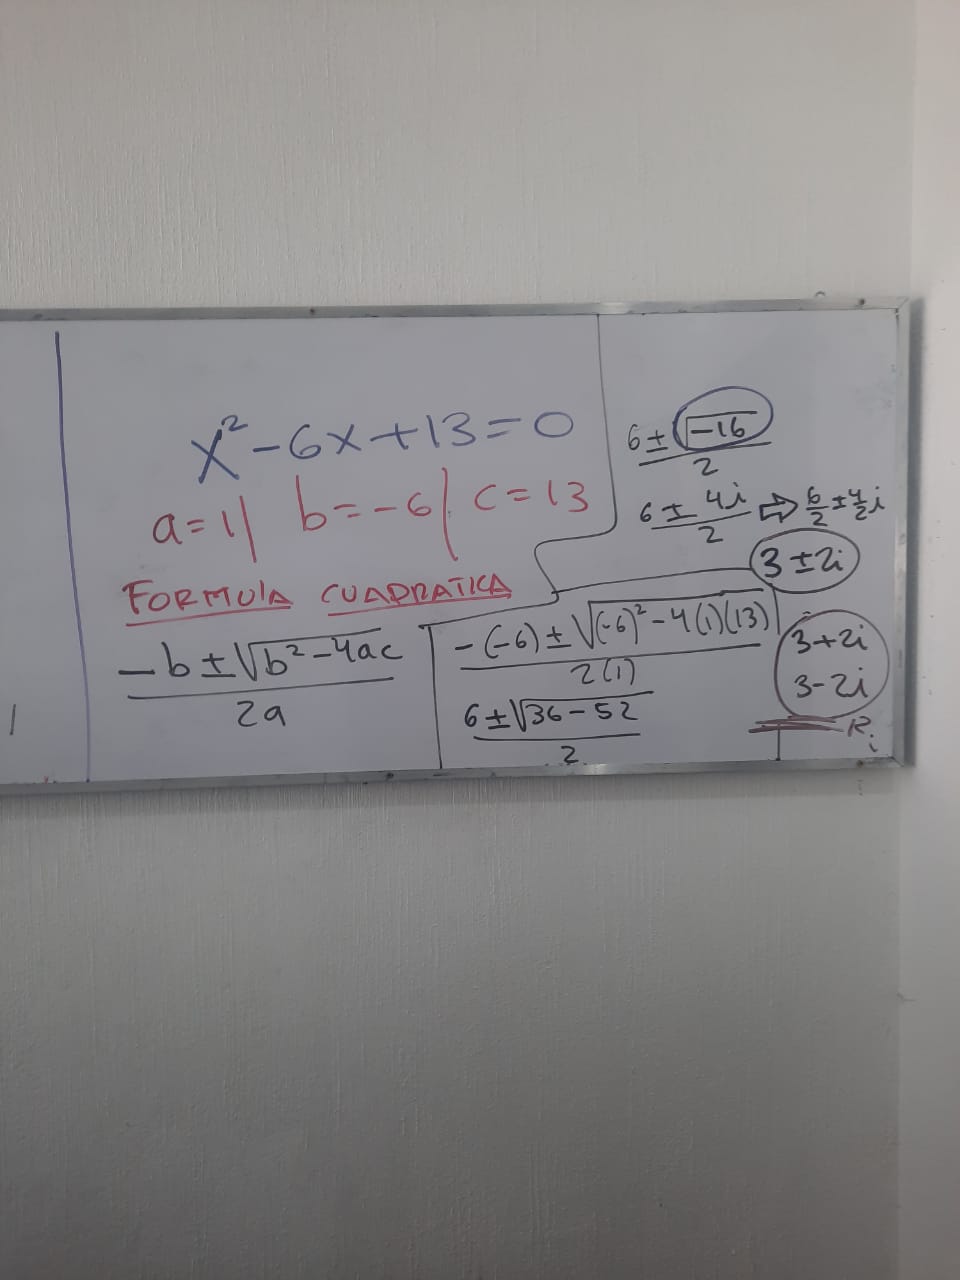 x² - 6x + 13 = 0
a = 1 | b = -6 | c = 13
FORMULA CUADRATICA
-b ± √b² - 4ac
2a
-(-6) ± √(-6)² - 4(1)(13)
2(1)
6 ± √36 - 52
2
6 ± √-16
2
6 ± 4i
2
⇒ 6/2 ± 4/2 i
3 ± 2i
3 + 2i
3 - 2i